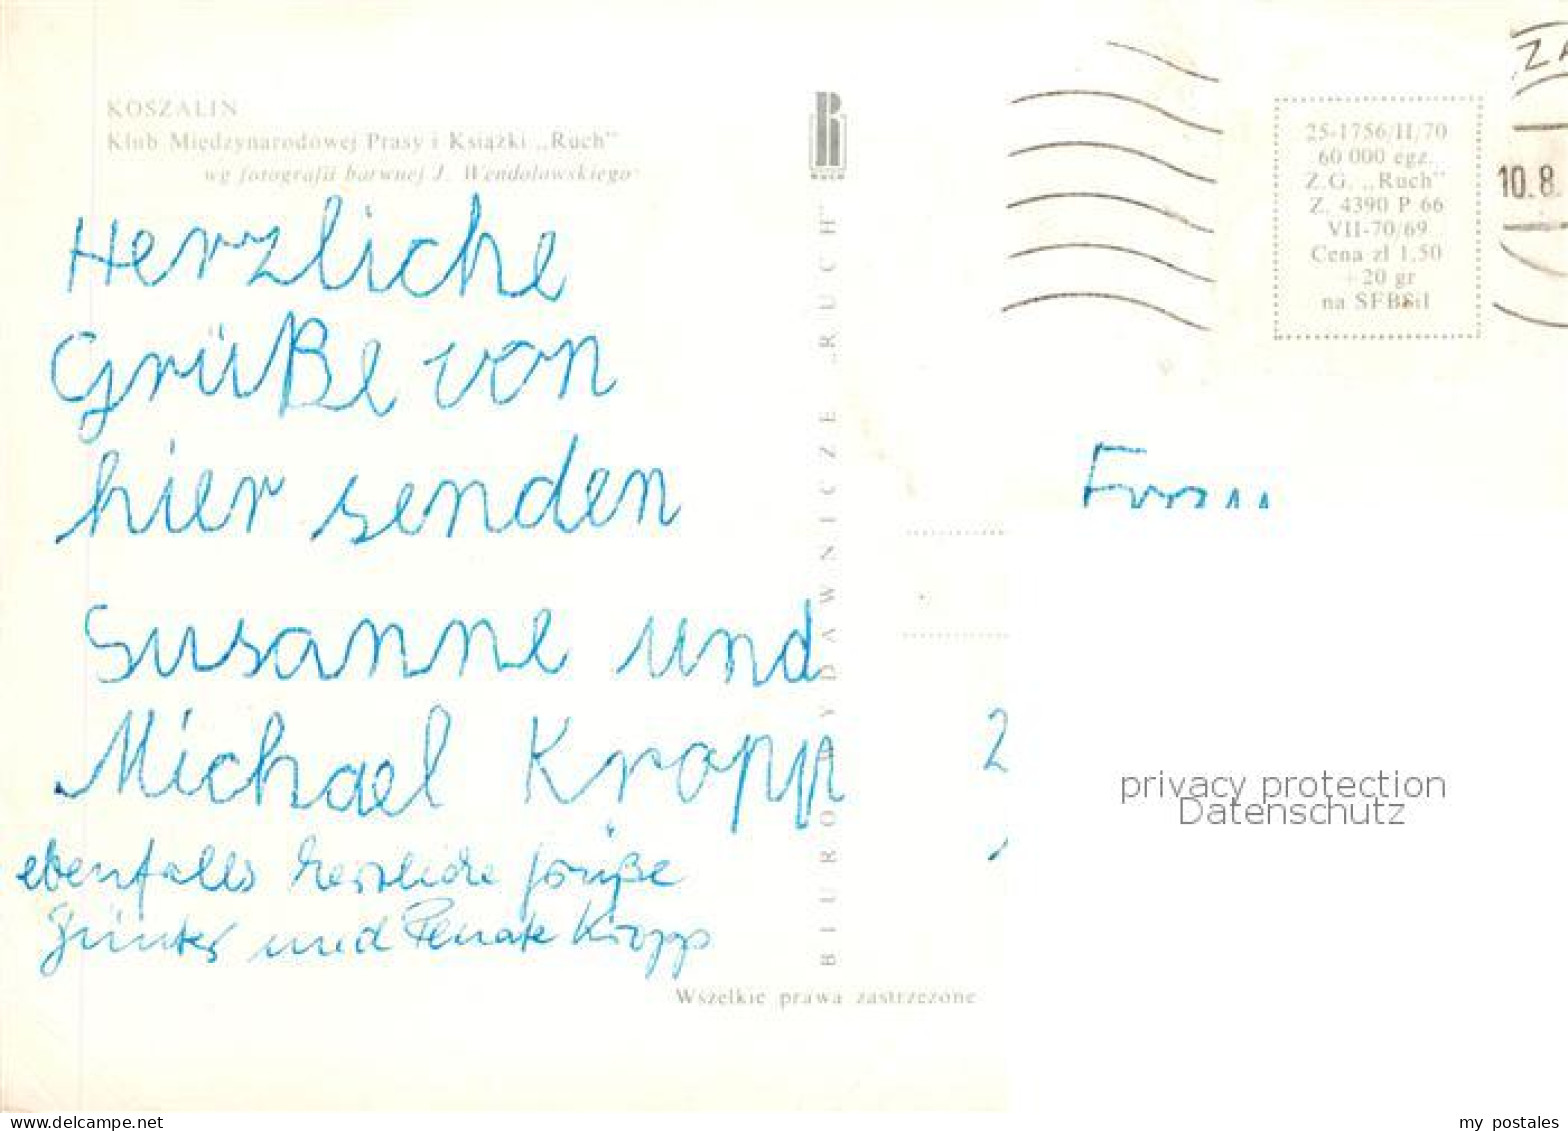 KOSZALIN
Klub Międzynarodowej Prasy i Książki „Ruch”
wg fotografii barwnej J. Wendołowskiego
Herzliche
Grüße von
hier senden
Susanne und
Michael Kropp
ebenfalls herzliche Grüße
Günter und Renate Kropp
RUCH
BIURO WYDAWNICZE „RUCH”
Wszelkie prawa zastrzeżone
25-1756/II/70
60 000 egz.
Z.G. „Ruch”
Z. 4390 P 66
VII-70/69
Cena zł 1,50
+ 20 gr
na SFBSiI
10.8.
privacy protection
Datenschutz
my postales